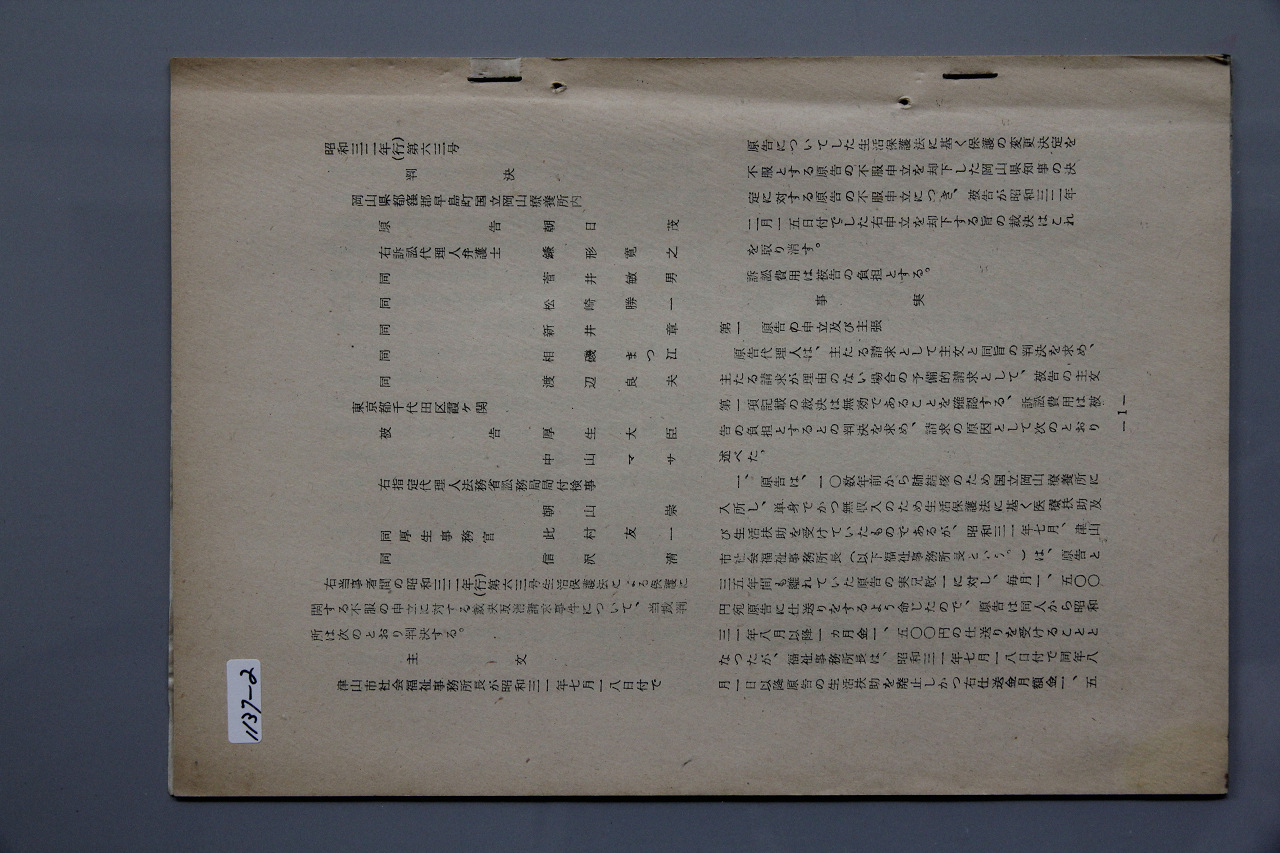 昭和三二年(行)第六三号
判決
岡山県都窪郡早島町国立岡山療養所内
原告 朝日茂
右訴訟代理人弁護士 鎌形寛之
同 菅井敏男
同 松崎勝一
同 新井章
同 相磯まつ江
同 渡辺良夫
東京都千代田区霞ケ関
被告 厚生大臣
中山マサ
右指定代理人法務省訟務局局付検事
朝山崇
同厚生事務官 此村友一
同 信沢清
右当事者間の昭和三二年(行)第六三号生活保護法による保護に
関する不服の申立に対する裁決取消請求事件について、当裁判
所は次のとおり判決する。
主文
津山市社会福祉事務所長が昭和三一年七月一八日付で
原告についてした生活保護法に基く保護の変更決定を
不服とする原告の不服申立を却下した岡山県知事の決
定に対する原告の不服申立につき、被告が昭和三二年
二月一五日付でした右申立を却下する旨の裁決はこれ
を取り消す。
訴訟費用は被告の負担とする。
事実
第一 原告の申立及び主張
原告代理人は、主たる請求として主文と同旨の判決を求め、
主たる請求が理由のない場合の予備的請求として、被告の主文
第一項記載の裁決は無効であることを確認する、訴訟費用は被
告の負担とするとの判決を求め、請求の原因として次のとおり
述べた、
一、原告は、一〇数年前から肺結核のため国立岡山療養所に
入所し、単身でかつ無収入のため生活保護法に基く医療扶助及
び生活扶助を受けていたものであるが、昭和三一年七月、津山
市社会福祉事務所長(以下福祉事務所長という。)は、原告と
三五年間も離れていた原告の実兄敬一に対し、毎月一、五〇〇
円宛原告に仕送りをするよう命じたので、原告は同人から昭和
三一年八月以降一カ月金一、五〇〇円の仕送りを受けることと
なつたが、福祉事務所長は、昭和三一年七月一八日付で同年八
月一日以降原告の生活扶助を廃止しかつ右仕送金月額金一、五
—1—
1137-2